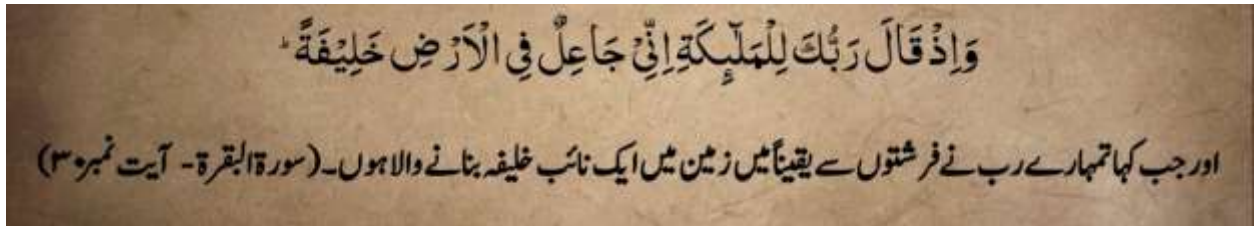 وَاِذْ قَالَ رَبُّكَ لِلْمَلٰٓىِٕكَةِ اِنِّیْ جَاعِلٌ فِی الْاَرْضِ خَلِیْفَةً ؕ
اور جب کہا تمہارے رب نے فرشتوں سے یقیناً میں زمین میں ایک نائب خلیفہ بنانے والا ہوں۔ (سورۃ البقرۃ - آیت نمبر ۳۰)